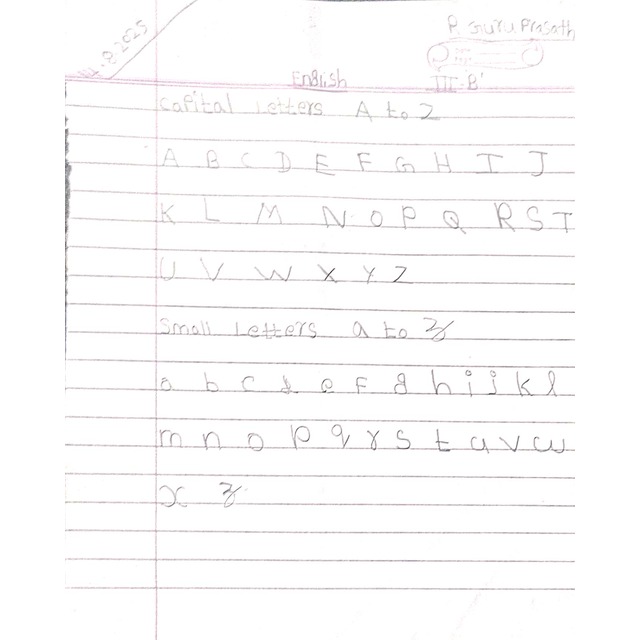 11.8.2025
R Guru Prasath
English
III-B'
Capital Letters A to Z
A B C D E F G H I J
K L M N O P Q R S T
U V W X Y Z
Small Letters a to z
a b c d e f g h i j k l
m n o p q r s t u v w
x z